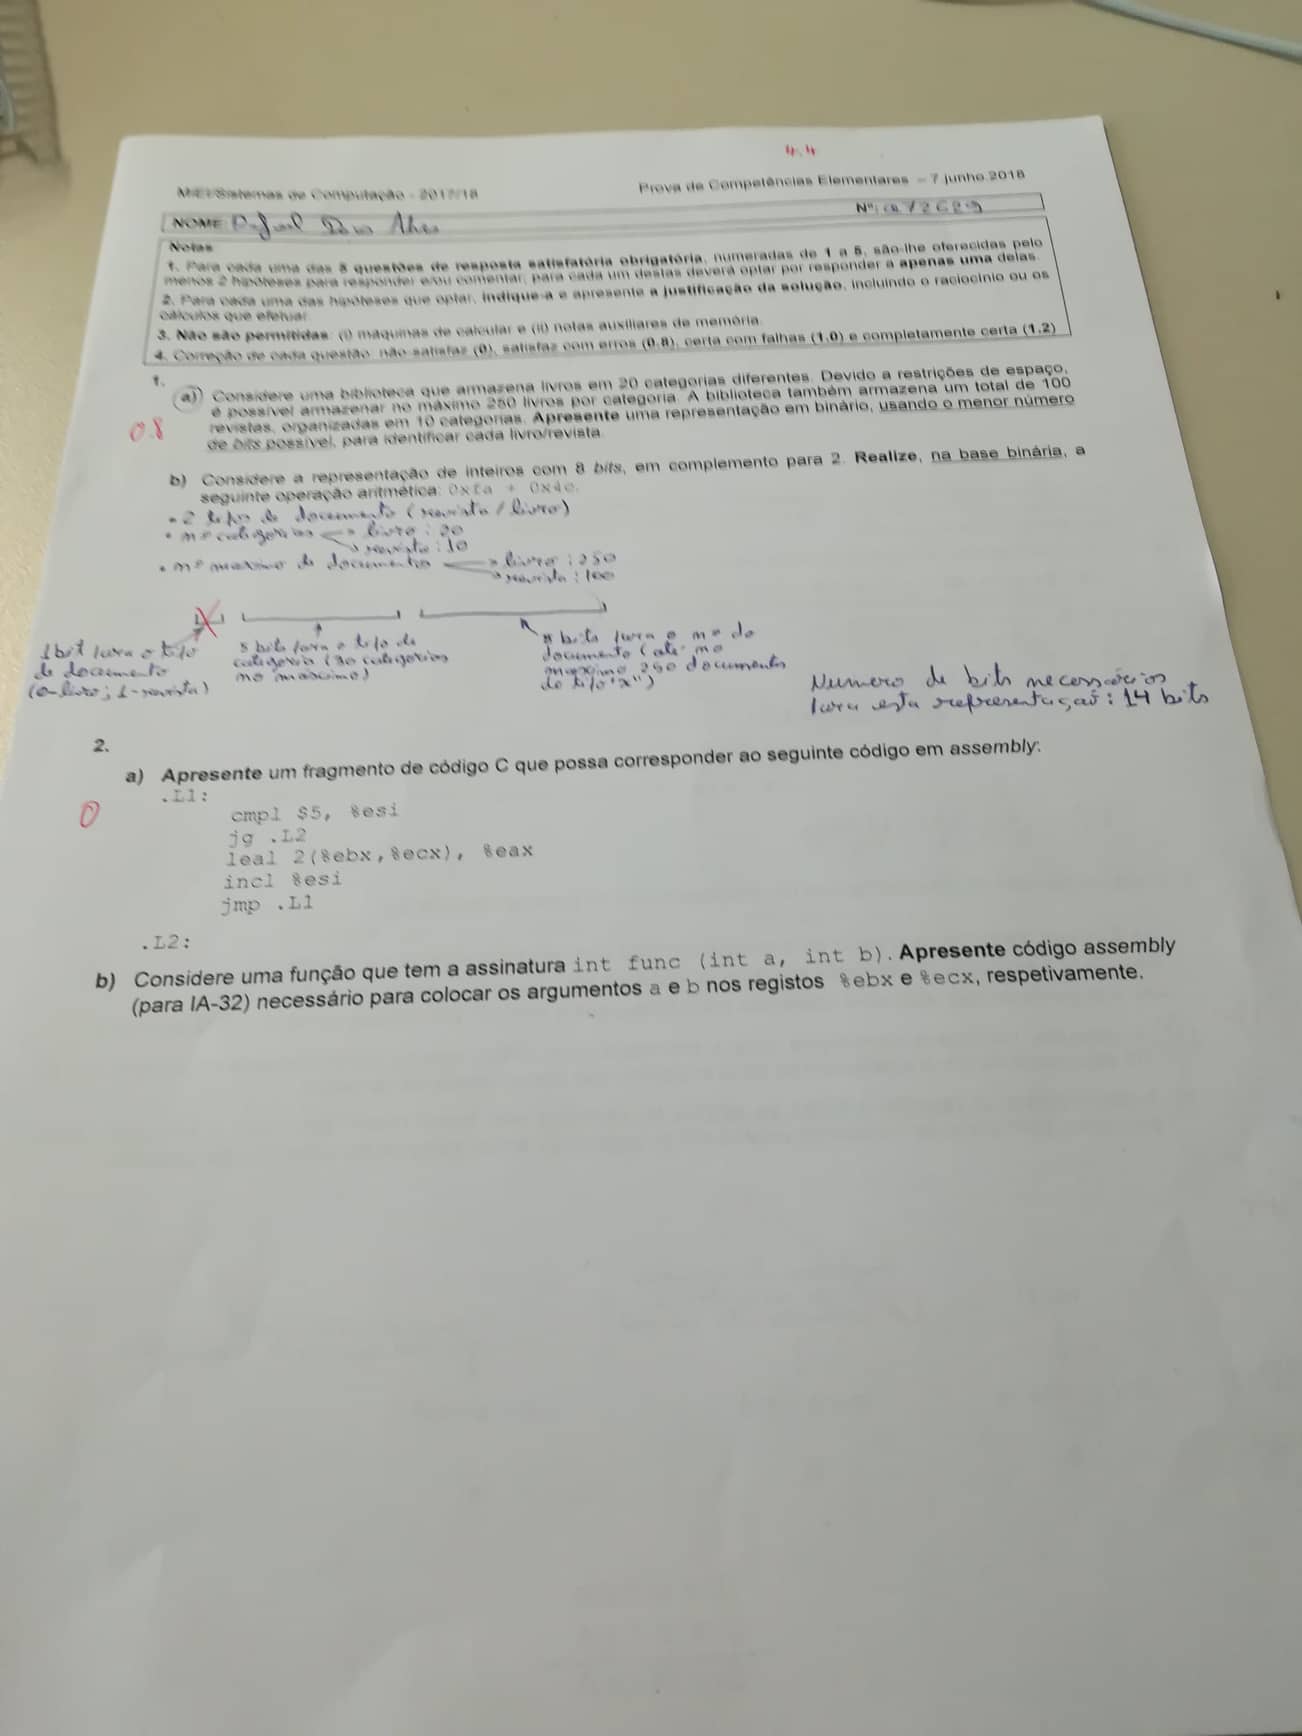 4.4
MiEI/Sistemas de Computação - 2017/18
Prova de Competências Elementares - 7 junho 2018
NOME:
Nº: a72629
Notas
1. Para cada uma das 5 questões de resposta satisfatória obrigatória, numeradas de 1 a 5, são-lhe oferecidas pelo
menos 2 hipóteses para responder e/ou comentar; para cada um destas deverá optar por responder a apenas uma delas.
2. Para cada uma das hipóteses que optar, indique-a e apresente a justificação da solução, incluindo o raciocínio ou os
cálculos que efetuar.
3. Não são permitidas: (i) máquinas de calcular e (ii) notas auxiliares de memória.
4. Correção de cada questão: não satisfaz (0), satisfaz com erros (0.8), certa com falhas (1.0) e completamente certa (1.2)
1.
a) Considere uma biblioteca que armazena livros em 20 categorias diferentes. Devido a restrições de espaço,
é possível armazenar no máximo 250 livros por categoria. A biblioteca também armazena um total de 100
0.8 revistas, organizadas em 10 categorias. Apresente uma representação em binário, usando o menor número
de bits possível, para identificar cada livro/revista.
b) Considere a representação de inteiros com 8 bits, em complemento para 2. Realize, na base binária, a
seguinte operação aritmética: 0xfa + 0x4c.
• 2 tipos de documento (revista / livro)
• nº categorias → livro : 20
→ revista : 10
• nº maximo de documentos → livros : 250
→ revista : 100
1 bit para o tipo
de documento
(0-livro; 1-revista)
5 bits para o tipo de
categoria (30 categorias
no maximo)
8 bits para o nº do
documento (ate no
maximo 250 documentos
do tipo "x")
Numero de bits necessários
para esta representação: 14 bits
2.
a) Apresente um fragmento de código C que possa corresponder ao seguinte código em assembly:
.L1:
0
cmpl $5, %esi
jg .L2
leal 2(%ebx,%ecx), %eax
incl %esi
jmp .L1
.L2:
b) Considere uma função que tem a assinatura int func (int a, int b). Apresente código assembly
(para IA-32) necessário para colocar os argumentos a e b nos registos %ebx e %ecx, respetivamente.